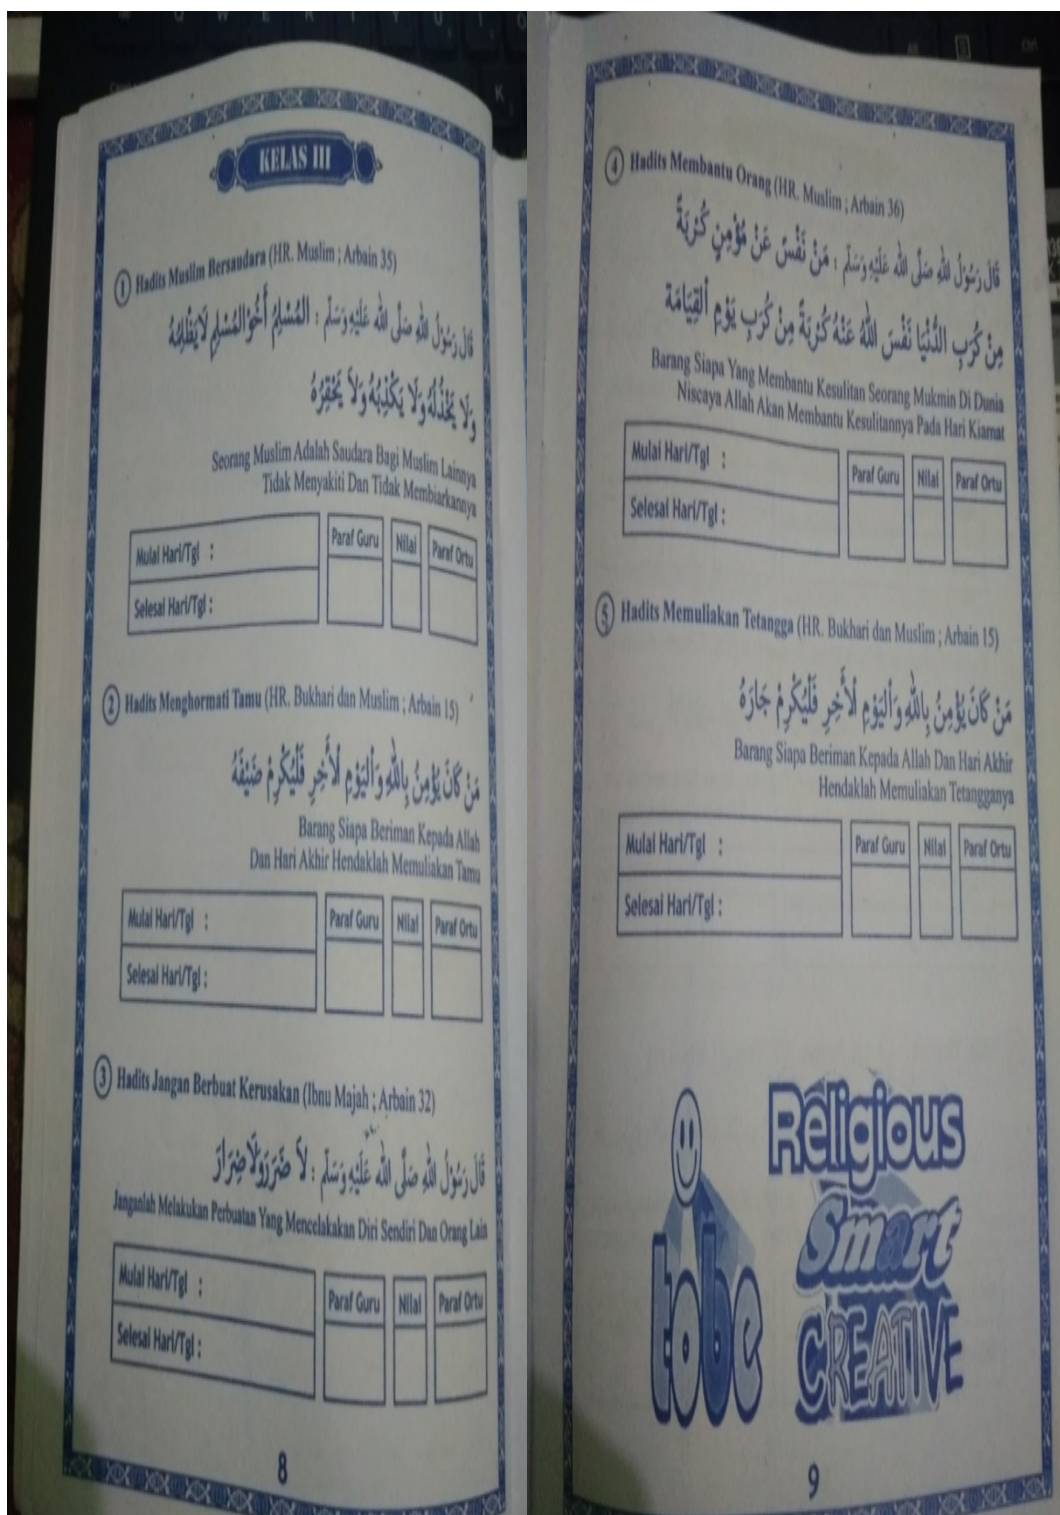 KELAS III
1 Hadits Muslim Bersaudara (HR. Muslim ; Arbain 35)
قَالَ رَسُوْلُ اللهِ صَلَّى اللهُ عَلَيْهِ وَسَلَّمَ : اَلْمُسْلِمُ أَخُوْالْمُسْلِمِ لَايَظْلِمُهُ
وَلَا يَخْذُلُهُ وَلَا يَكْذِبُهُ وَلَا يَحْقِرُهُ
Seorang Muslim Adalah Saudara Bagi Muslim Lainnya
Tidak Menyakiti Dan Tidak Membiarkannya
Mulai Hari/Tgl :
Paraf Guru
Nilai
Paraf Ortu
Selesai Hari/Tgl :
2 Hadits Menghormati Tamu (HR. Bukhari dan Muslim ; Arbain 15)
مَنْ كَانَ يُؤْمِنُ بِاللهِ وَأْليَوْمِ لْأَخِرِ فَلْيُكْرِمْ ضَيْفَهُ
Barang Siapa Beriman Kepada Allah
Dan Hari Akhir Hendaklah Memuliakan Tamu
Mulai Hari/Tgl :
Paraf Guru
Nilai
Paraf Ortu
Selesai Hari/Tgl :
3 Hadits Jangan Berbuat Kerusakan (Ibnu Majah ; Arbain 32)
قَالَ رَسُوْلُ اللهِ صَلَّى اللهُ عَلَيْهِ وَسَلَّمَ : لَا ضَرَرَوَلَاضِرَارَ
Janganlah Melakukan Perbuatan Yang Mencelakakan Diri Sendiri Dan Orang Lain
Mulai Hari/Tgl :
Paraf Guru
Nilai
Paraf Ortu
Selesai Hari/Tgl :
8
4 Hadits Membantu Orang (HR. Muslim ; Arbain 36)
قَالَ رَسُوْلُ اللهِ صَلَّى اللهُ عَلَيْهِ وَسَلَّمَ : مَنْ نَفَّسَ عَنْ مُؤْمِنٍ كُرْبَةً
مِنْ كُرَبِ الدُّنْيَا نَفَّسَ اللهُ عَنْهُ كُرْبَةً مِنْ كُرَبِ يَوْمِ أْلقِيَامَة
Barang Siapa Yang Membantu Kesulitan Seorang Mukmin Di Dunia
Niscaya Allah Akan Membantu Kesulitannya Pada Hari Kiamat
Mulai Hari/Tgl :
Paraf Guru
Nilai
Paraf Ortu
Selesai Hari/Tgl :
5 Hadits Memuliakan Tetangga (HR. Bukhari dan Muslim ; Arbain 15)
مَنْ كَانَ يُؤْمِنُ بِاللهِ وَأْليَوْمِ لْأَخِرِ فَلْيُكْرِمْ جَارَهُ
Barang Siapa Beriman Kepada Allah Dan Hari Akhir
Hendaklah Memuliakan Tetangganya
Mulai Hari/Tgl :
Paraf Guru
Nilai
Paraf Ortu
Selesai Hari/Tgl :
to be
Religious
Smart
CREATIVE
9